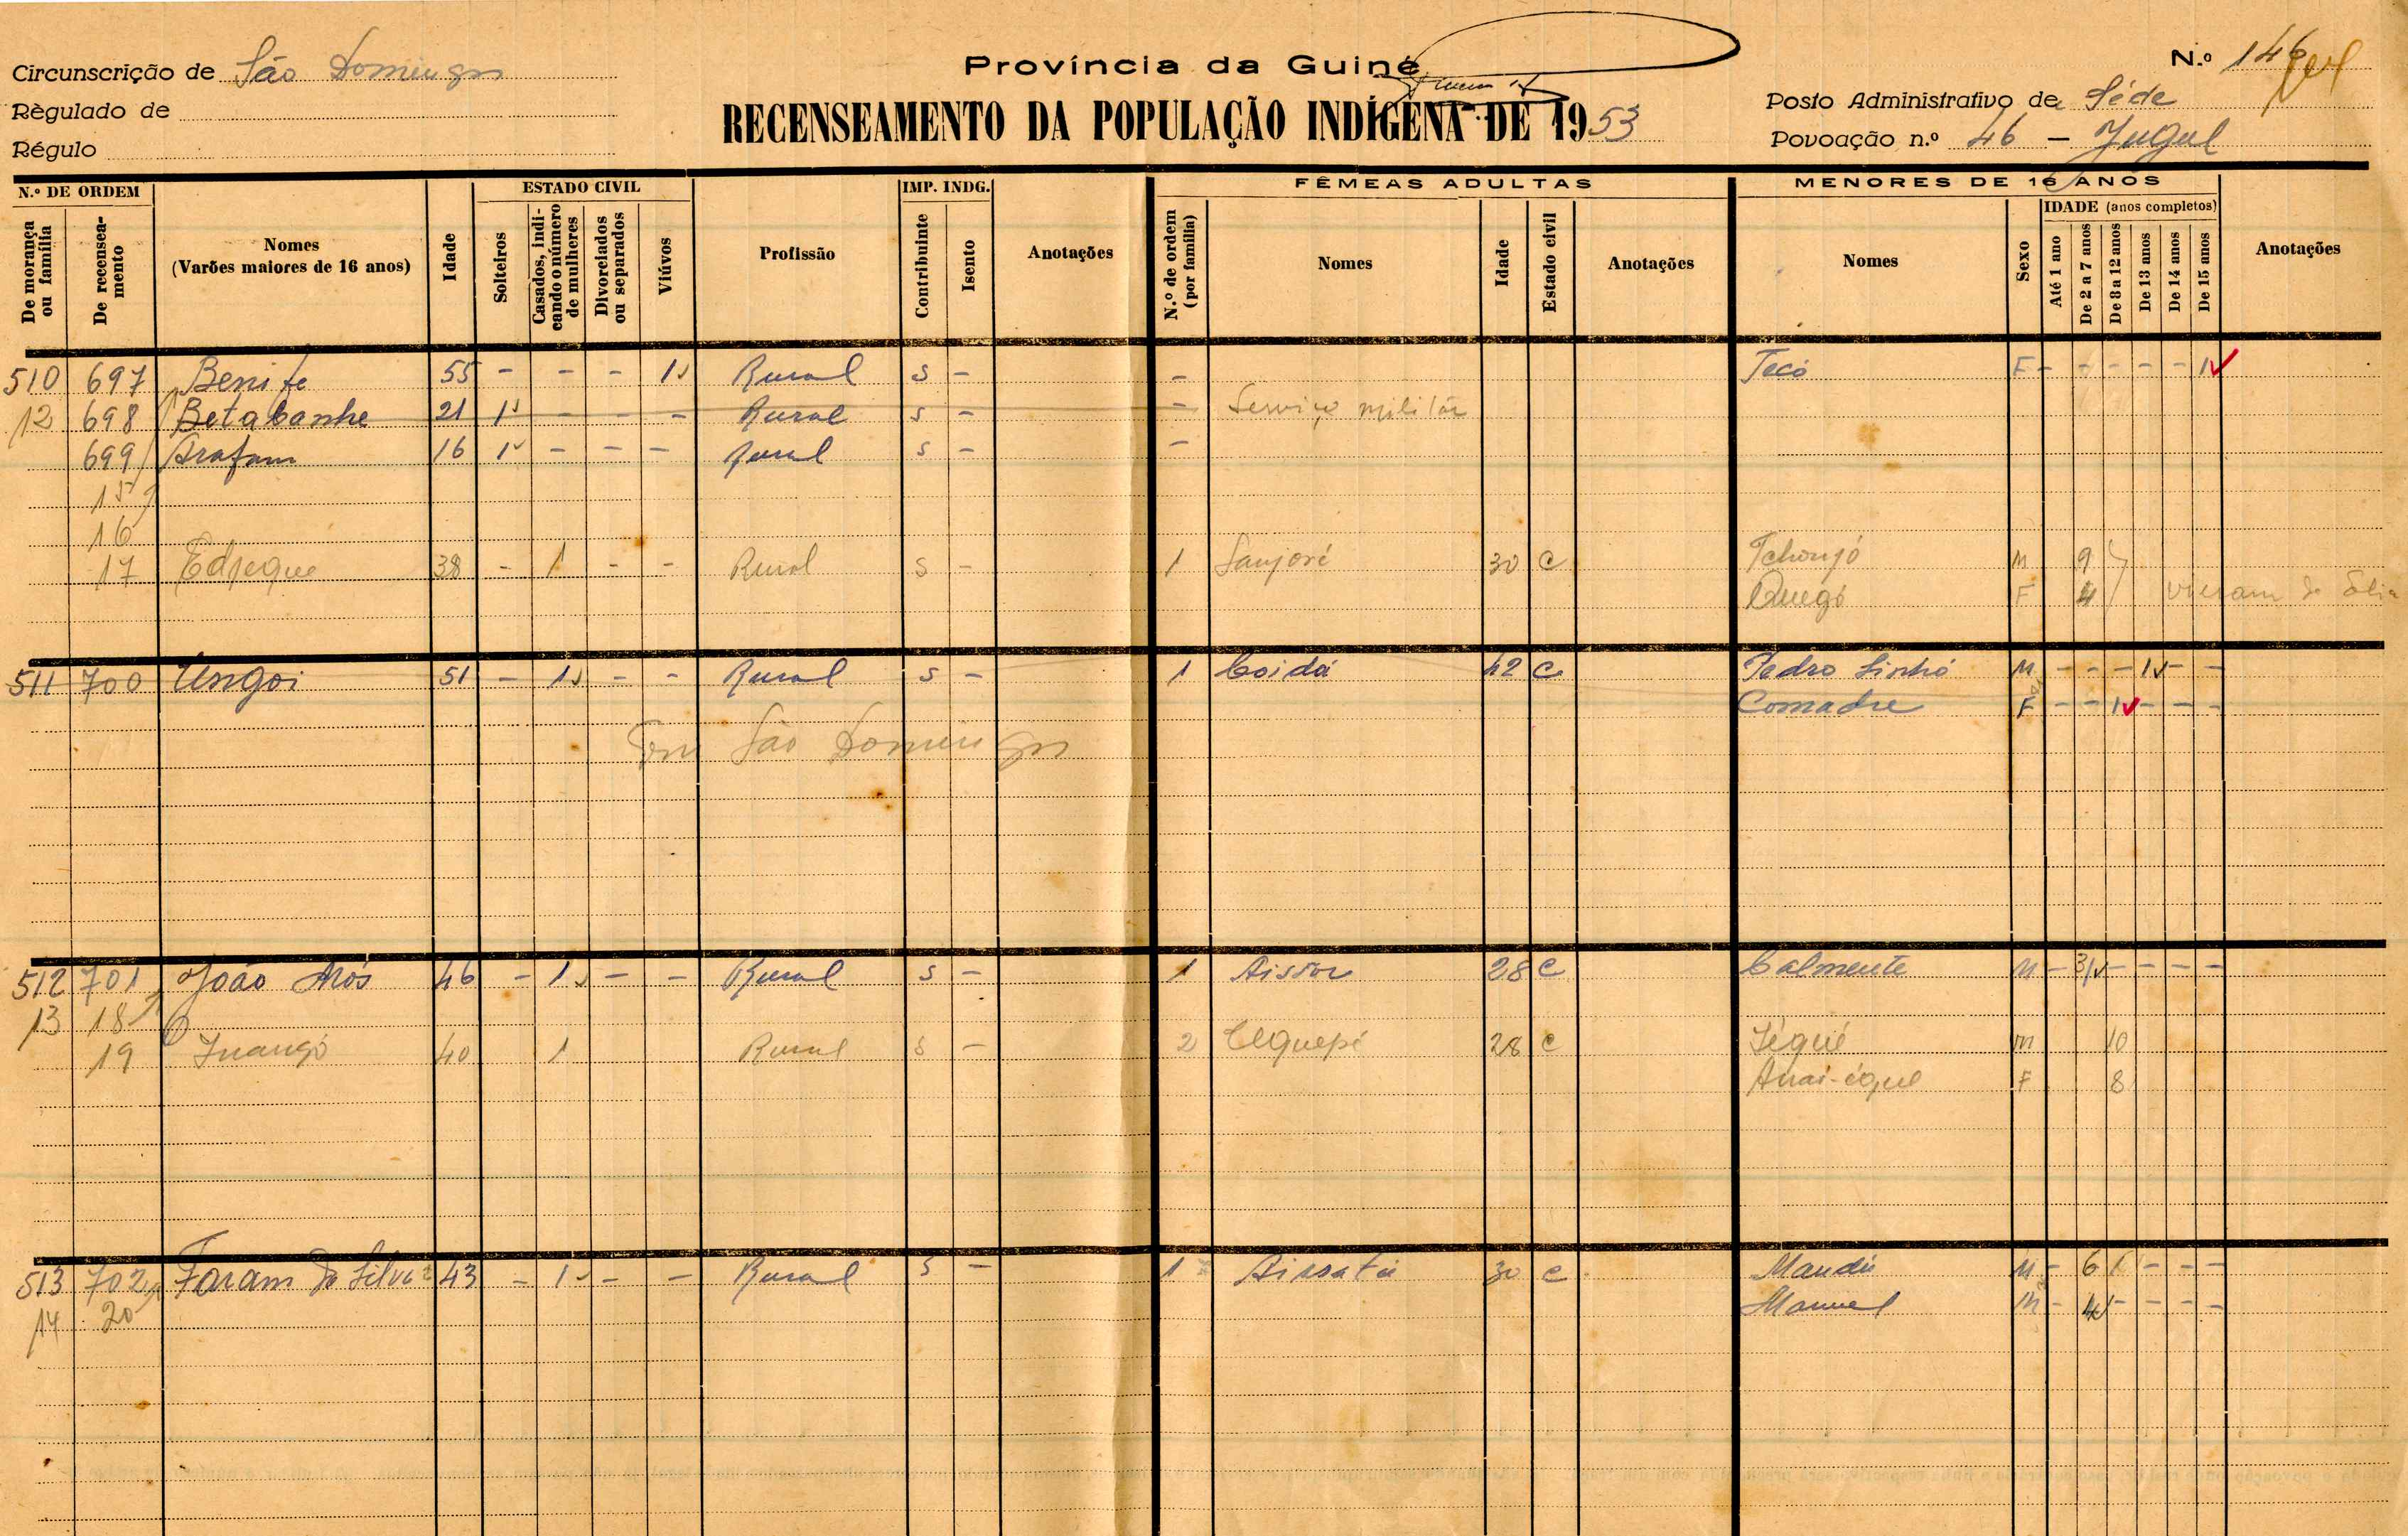 Circunscrição de São Domingos
Província da Guiné
N.º 146
Règulado de
RECENSEAMENTO DA POPULAÇÃO INDÍGENA DE 1953
Posto Administrativo de Séde
Régulo
Povoação n.º 46 — Jugul
N.º DE ORDEM ESTADO CIVIL IMP. INDG. FÊMEAS ADULTAS MENORES DE 16 ANOS
De morança ou família De recenseamento Nomes (Varões maiores de 16 anos) Idade Solteiros Casados, indicando o número de mulheres Divorciados ou separados Viúvos Profissão Contribuinte Isento Anotações N.º de ordem (por família) Nomes Idade Estado civil Anotações Nomes Sexo IDADE (anos completos) Até 1 ano De 2 a 7 anos De 8 a 12 anos De 13 anos De 14 anos De 15 anos Anotações
510 697 Benife 55 - - - 1 Rural S - - Tecó F - - - - - 1
12 698 Betabanhe 21 1 - - - Rural S - - Serviço militar
699 Arafam 16 1 - - - Rural S - -
15
16
17 38 - 1 - - Rural S - 1 Sanjoré 30 C Tchonjó M 9
Quegó F 4 Vieram de
511 700 Ungoi 51 - 1 - - Rural S - 1 Coidá 42 C Pedro Sinhó M - - - 1 - -
Comadre F - - 1 - - -
Em São Domingos
512 701 João Arós 46 - 1 - - Rural S - 1 28 C Calmente M - 3 - - - -
13 18
19 Juangó 40 1 Rural S - 2 28 C Jéqué M 10
F 8
513 702 Faram da Silva 43 - 1 - - Rural S - 1 Aissatú 30 C Mandú M - 6 - - -
14 20 Manuel M - 4 - - - -